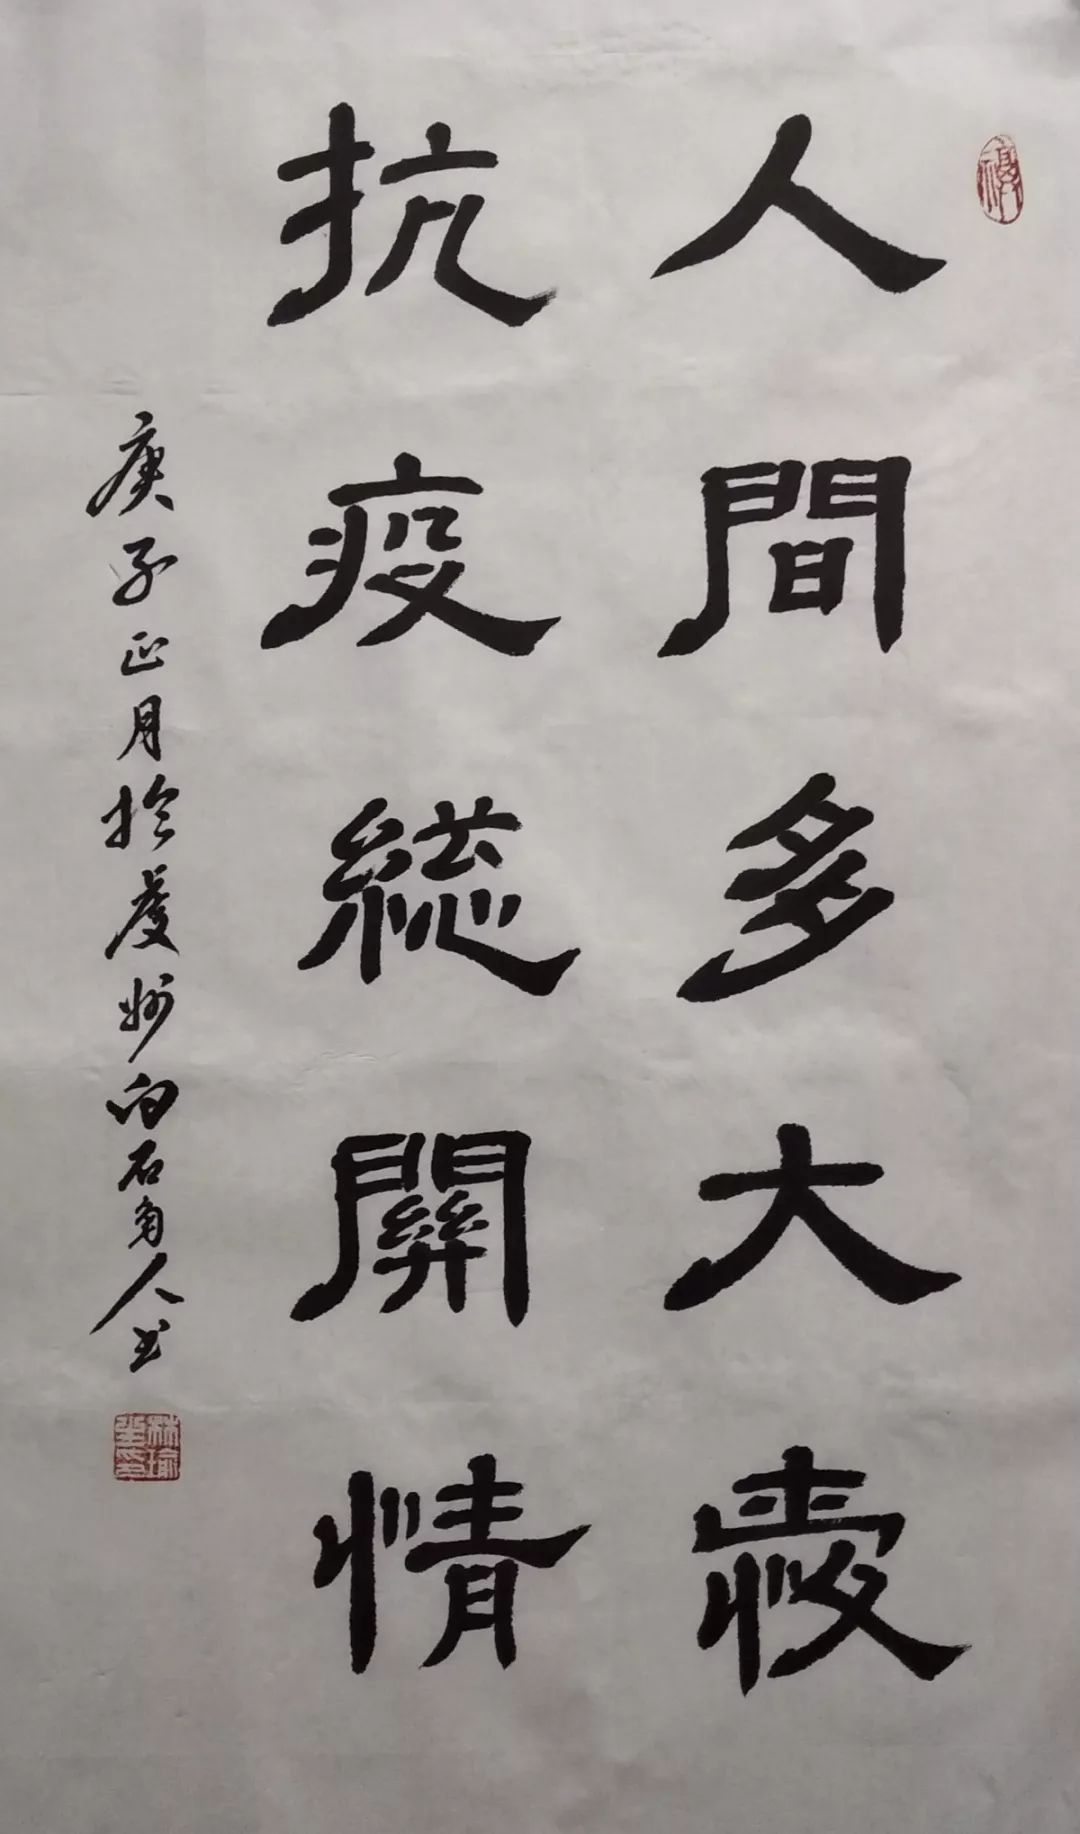 人間多大愛
抗疫総關情
庚子正月於虔州白石角人书